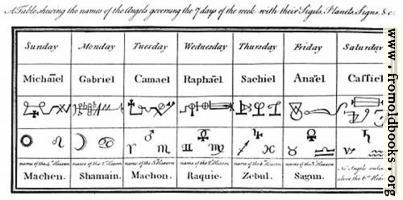 A Table shewing the names of the Angels governing the 7 days of the week with their Sigils, Planets, Signs, &c.
Sunday Monday Tuesday Wednesday Thursday Friday Saturday
Michaïel Gabriel Camael Raphaël Sachiel Anaël Caffiel
♈ ♏ ♊ ♍ ♐ ♓ ♉ ♎ ♑ ♒
name of the 4th Heaven name of the 1st Heaven name of the 5th Heaven name of the 2nd Heaven name of the 6th Heaven name of the 3rd Heaven No Angels ruling above the 6th Heaven
Machen. Shamain. Machon. Raquie. Zebul. Sagun.
www.fromoldbooks.org